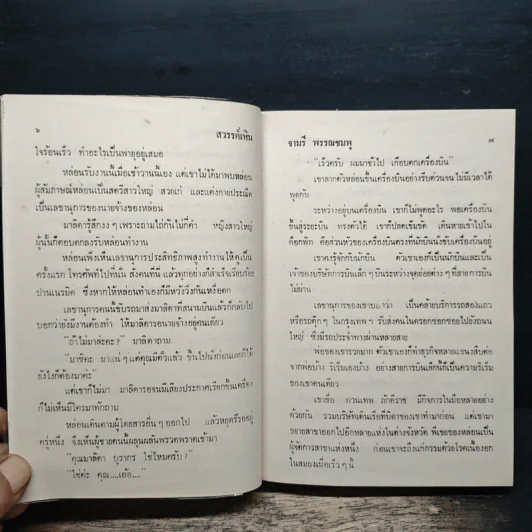 ๖ สวรรค์เทิน
ใจร้อนเร็ว ทำอะไรเป็นพายุอยู่เสมอ
หล่อนรับงานนี้เมื่อเช้าวานนี้เอง แต่เขาไม่ได้มาพบหล่อน
ผู้สัมภาษณ์หล่อนเป็นสตรีสาวใหญ่ สวยเก๋ และแต่งกายประณีต
เป็นเลขานุการของนายจ้างของหล่อน
มาลิดารู้สึกงง ๆ เพราะถามไถ่กันไม่กี่คำ หญิงสาวใหญ่
ผู้นั้นก็ตอบตกลงรับหล่อนทำงาน
หล่อนเพิ่งเห็นเลขานุการประสิทธิภาพสูงทำงานให้ดูเป็น
ครั้งแรก โทรศัพท์ไปที่นั่น สั่งคนที่นี่ แล้วทุกอย่างก็สำเร็จเรียบร้อย
ปานเนรมิต ซึ่งหากให้หล่อนทำเองก็มีหวังวิ่งกันเหงื่อตก
เลขานุการคนนี้ขับรถมาส่งมาลิดาที่สนามบินแล้วก็กลับไป
บอกว่ายังมีงานต้องทำ ให้มาลิดารอนายจ้างอยู่คนเดียว
"ถ้าไม่มาล่ะคะ?" มาลิดาถาม
"มาซิคะ มาแน่ ๆ แต่คุณมีตั๋วแล้ว ขึ้นไปนั่งก่อนเลยก็ได้
ยังไงก็ต้องมาค่ะ"
แต่เขาก็ไม่มา มาลิดารอจนมีเสียงประกาศเรียกขึ้นเครื่อง
ก็ไม่เห็นมีใครมาทักถาม
หล่อนเดินตามผู้โดยสารอื่น ๆ ออกไป แล้วหยุดรีรออยู่
ครู่หนึ่ง จึงเห็นผู้ชายคนนั้นลุกลนผลันพรวดพราดเข้ามา
"คุณมาลิดา บุรากร ใช่ไหมครับ?"
"ใช่ค่ะ คุณ.....เอ้อ....."
จามรี พรรณชมพู ๗
"เร็วครับ ผมมาช้าไป เกือบตกเครื่องบิน"
เขาลากตัวหล่อนขึ้นเครื่องบินอย่างรีบด่วนจน ไม่มีเวลาได้
พูดกัน
ระหว่างอยู่บนเครื่องบิน เขาก็ไม่พูดอะไร พอเครื่องบิน
ขึ้นสู่ระยะบิน ทรงตัวได้ เขาก็ปลดเข็มขัด เดินหายเข้าไปใน
ค็อกพิท คือส่วนหัวของเครื่องตรงที่นักบินนั่งขับเครื่องบินอยู่
เขาคงรู้จักกับนักบิน ตัวเขาเองก็เป็นนักบินและเป็น
เจ้าของบริษัทการบินเล็ก ๆ บินระหว่างจุดย่อยต่าง ๆ ที่สายการบิน
ไม่ผ่าน
เลขานุการของเขาบอกว่า เป็นคล้ายบริการรถสองแถว
หรือรถตุ๊ก ๆ ในกรุงเทพ ฯ รับส่งคนในตรอกซอกซอยไปยังถนน
ใหญ่ ซึ่งมีรถประจำทางผ่านหลายสาย
พ่อของเขารวยมาก ตัวเขาเองก็ทำธุรกิจหลายแขนงสืบต่อ
จากพ่อบ้าง ริเริ่มเองบ้าง อย่างสายการบินเล็กนี้ก็เป็นความริเริ่ม
ของเขาคนเดียว
เขาชื่อ ทวนเทพ ภักดีราช มีกิจการในมือหลายอย่าง
ด้วยกัน รวมบริษัทเดินเรือที่บิดาของเขาทำมาก่อน แต่เขามา
ขยายสาขาออกไปอีกหลายแห่งในต่างจังหวัด พี่เขยของหล่อนเป็น
ผู้จัดการสาขาแห่งหนึ่ง ก่อนเขาจะถึงแก่กรรมด้วยโรคเนื้องอก
ในสมองเมื่อเร็ว ๆ นี้